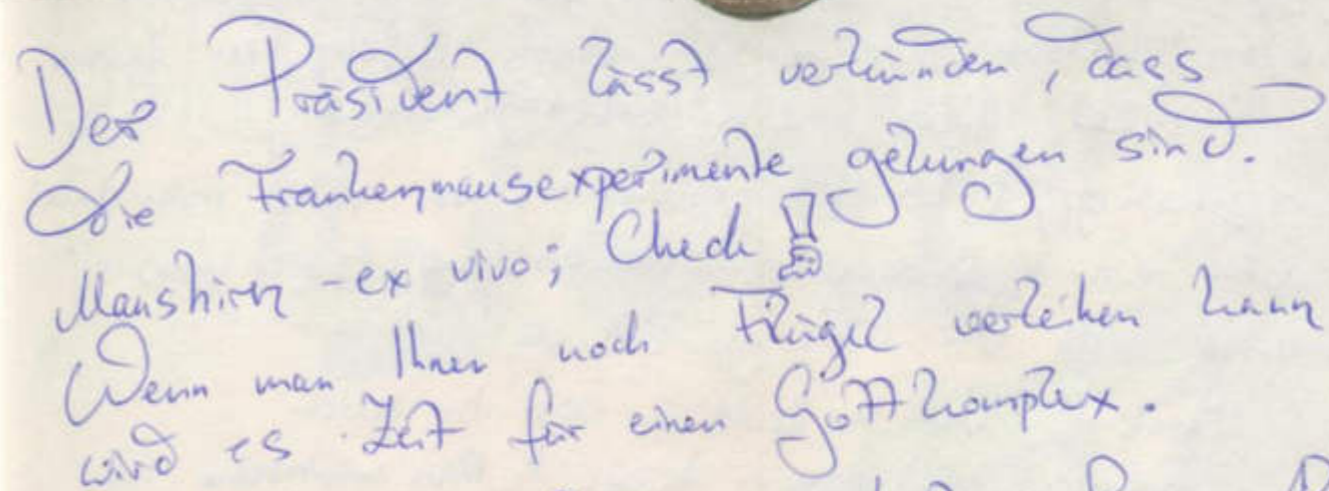 Der Präsident lässt verkünden, dass
die Frankenmausexperimente gelungen sind.
Maushirn - ex vivo; Check!
Wenn man Ihnen noch Flügel verleihen kann
wird es Zeit für einen Gottkomplex.